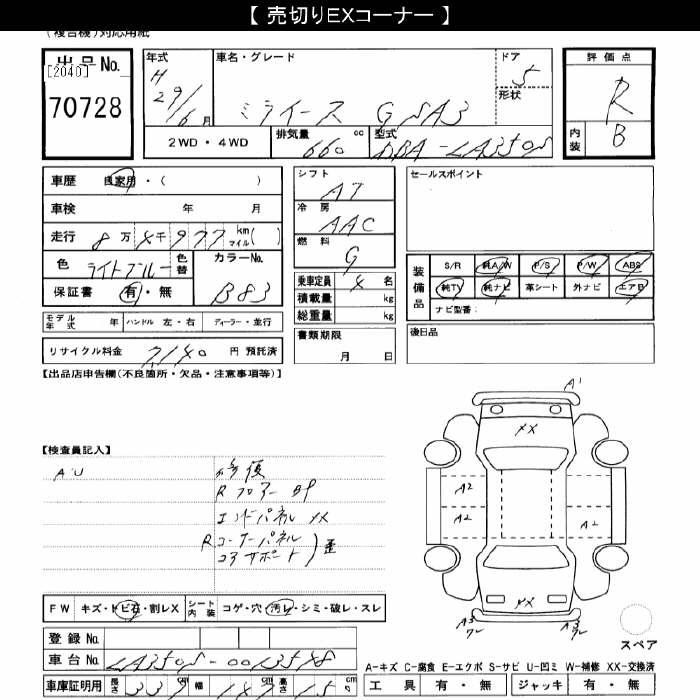 【 売切りEXコーナー 】
(複合機)対応用紙
出品No.
[2040]
70728
年式
H
29/6月
車名・グレード
ミライース G SA3
ドア
5
形状
2WD・4WD
排気量
660 cc
型式
DBA-LA350S
評価点
R
内装
B
車歴 自家用・( )
車検 年 月
走行 8万 4千 977 km マイル( )
色 ライトブルー
色替
カラーNo.
B83
保証書 有・無
モデル年式 年
ハンドル 左・右
ディーラー・並行
リサイクル料金 7140 円 預託済
シフト
AT
冷房
AAC
燃料
G
乗車定員 4 名
積載量 kg
総重量 kg
書類期限
月 日
セールスポイント
装備品
S/R 純A/W P/S P/W ABS
純TV 純ナビ 革シート 外ナビ エアB
ナビ型番:
後日品
【出品店申告欄(不良箇所・欠品・注意事項等)】
【検査員記入】
A・U
修復
Rフロアー BP
エンドパネル XX
Rコーナーパネル
コアサポート
歪
A1
XX
A2
A2
A2
XX
スペア
FW キズ・トビ石・割レX
シート内装 コゲ・穴・汚レ・シミ・破レ・スレ
登録No.
車台No. LA350S-
車庫証明用
長さ 339 cm 幅 147 cm 高さ 15
A-キズ C-腐食 E-エクボ S-サビ U-凹ミ W-補修 XX-交換済
工具 有・無
ジャッキ 有・無